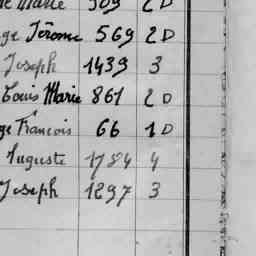 Marie 509 2 D
ge Jérome 569 2 D
Joseph 1439 3
Louis Marie 861 2 D
ge Francois 66 1 D
Auguste 1784 4
Joseph 1297 3